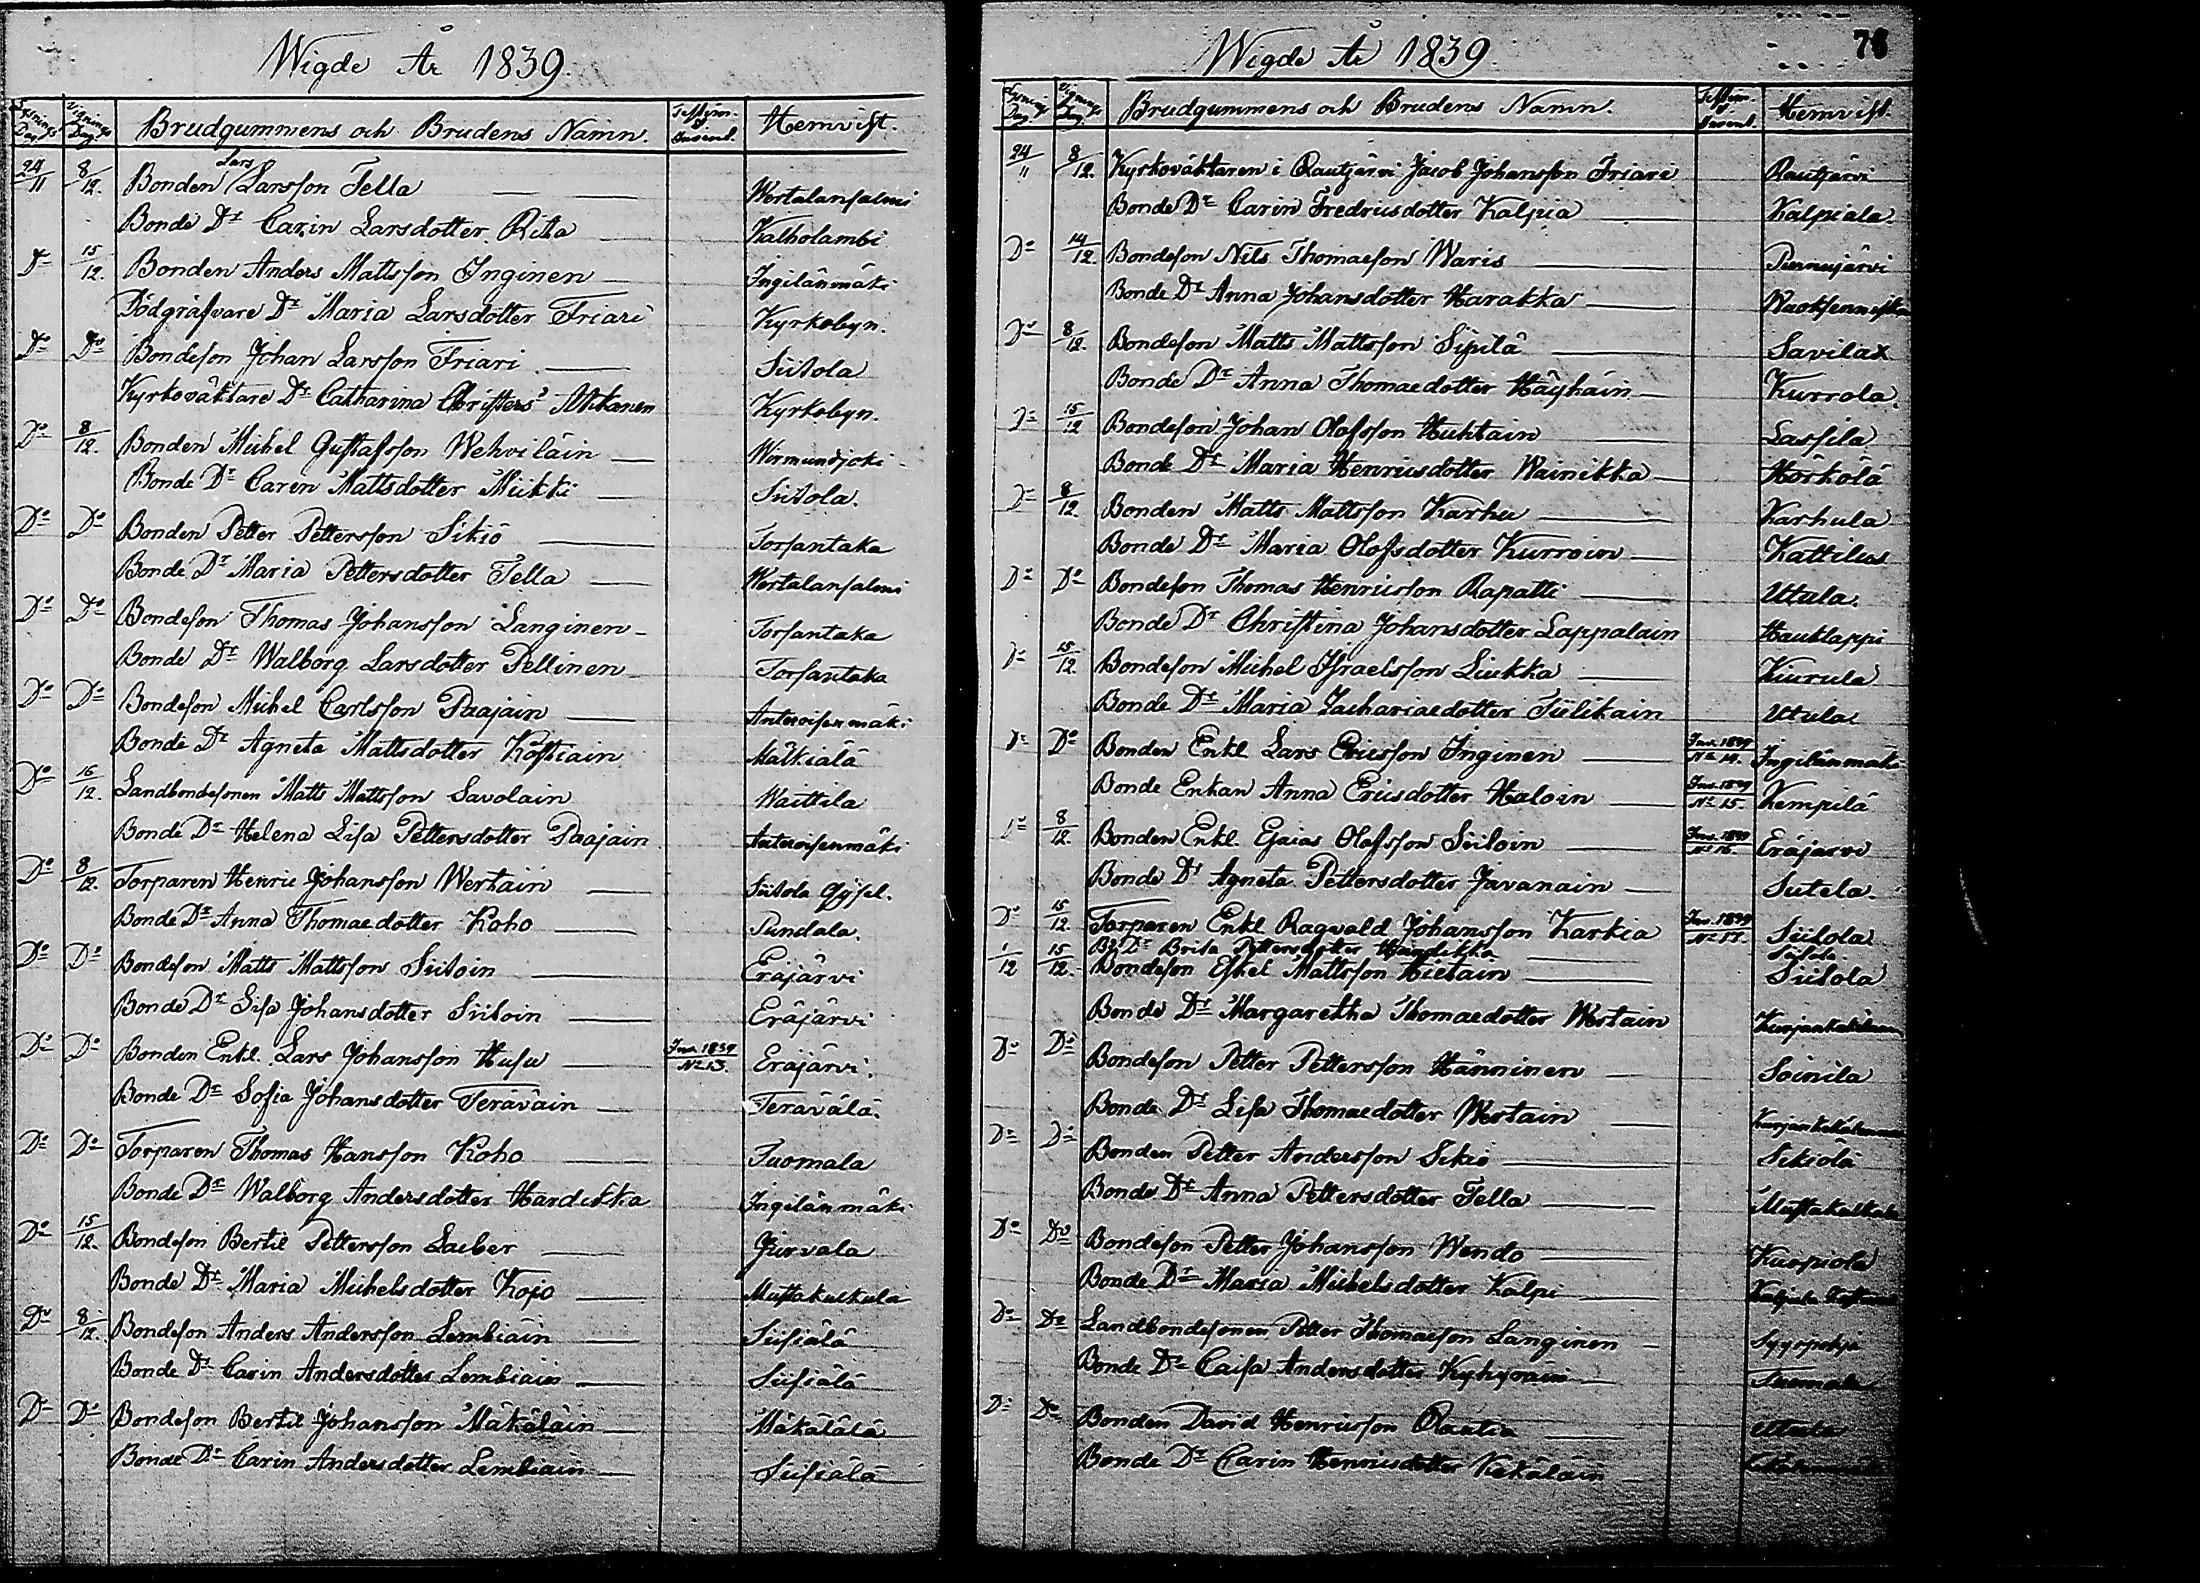 Wigde År 1839.
Lysnings Dag Vignings Dag Brudgummens och Brudens Namn. Hemvist.
24/11 8/12. Bonden Lars Larsson Tella Wertalansalmi
Bonde Dr Carin Larsdotter Rita Kalholambi
Do 15/12. Bonden Anders Mattsson Inginen Ingilänmäki
Dödgräfvare Dr Maria Larsdotter Friari Kyrkobyn.
Do Do Bondeson Johan Larsson Friari Siitola
Kyrkoväktare Dr Catharina Christers Kyrkobyn.
Do 8/12. Bonden Michel Gustafsson Wehviläin Wirmundjoki
Bonde Dr Caren Mattsdotter Miikki Siitola.
Do Do Bonden Petter Pettersson Sikiö Torsantaka
Bonde Dr Maria Pettersdotter Tella Wertalansalmi
Do Do Bondeson Thomas Johansson Langinen Torsantaka
Bonde Dr Walborg Larsdotter Pellinen Torsantaka
Do Do Bondeson Michel Carlsson Paajain Anteroisenmäki
Bonde Dr Agneta Mattsdotter Köstiain Mälkiälä
Do 16/12. Landbondesonen Matts Mattsson Savolain Waittila
Bonde Dr Helena Lisa Pettersdotter Paajain Anteroisenmäki
Do 8/12. Torparen Henric Johansson Wertain Siitola
Bonde Dr Anna Thomaedotter Koho Pundala.
Do Do Bondeson Matts Mattsson Siitoin Eräjärvi
Bonde Dr Lisa Johansdotter Siitoin Eräjärvi
Do Do Bonden Enkl. Lars Johansson Husu Inv. 1839 No 13. Eräjärvi.
Bonde Dr Sofia Johansdotter Teräväin Terävälä.
Do Do Torparen Thomas Hansson Koho Tuomala
Bonde Dr Walborg Andersdotter Hardikka Ingilänmäki
Do 15/12. Bondeson Bertil Pettersson Laiber Purvala
Bonde Dr Maria Michelsdotter Kojo Mustakulkula
Do 8/12. Bondeson Anders Andersson Lembiäin Siisiälä
Bonde Dr Carin Andersdotter Lembiäin Siisiälä
Do Do Bondeson Bertil Johansson Mäkäläin Mäkälälä
Bonde Dr Carin Andersdotter Lembiain Siisiälä
Wigde År 1839.
76
Lysnings Dag Vignings Dag Brudgummens och Brudens Namn. Hemvist.
24/11 8/12. Kyrkoväktaren i Rautjärvi Jacob Johansson Friari Rautjärvi
Bonde Dr Carin Fredricsdotter Kalpia Kalpiala.
Do 14/12. Bondeson Nils Thomaeson Waris Purnujärvi
Bonde Dr Anna Johansdotter Harakka
Do 8/12. Bondeson Matts Mattsson Sipilä Savilax
Bonde Dr Anna Thomaedotter Häyhäin Kurrola.
Do 15/12 Bondeson Johan Olofsson Huhtain Lassila
Bonde Dr Maria Henricsdotter Wainikka Hörkölä
Do 8/12. Bonden Matts Mattsson Karhu Karhula
Bonde Dr Maria Olofsdotter Kurroin Kattilus
Do Do Bondeson Thomas Henricsson Rapatti Utula.
Bonde Dr Christina Johansdotter Lappalain Hauklappi
Do 15/12. Bondeson Michel Israelsson Liukka Kiurula
Bonde Dr Maria Zachariaedotter Tiilikain Utula
Do Do Bonden Enkl Lars Ericsson Inginen Inv. 1839 No 14. Ingilänmäki
Bonde Enkan Anna Ericsdotter Haloin Inv. 1839 No 15. Kempilä
Do 8/12. Bonden Enkl. Esaias Olofsson Siitoin Inv. 1839 No 16. Eräjärvi
Bonde Dr Agneta Pettersdotter Javanain Sutela.
Do 15/12. Torparen Enkl Ragvald Johansson Karkia Inv. 1839 No 17. Siitola
Bde Dr Brita Pettersdotter Siitola
1/12 15/12. Bondeson Eskel Mattsson Hietain Siitola
Bonde Dr Margaretha Thomaedotter Wertain
Do Do Bondeson Petter Pettersson Hänninen Soinila
Bonde Dr Lisa Thomaedotter Wertain
Do Do Bonden Petter Andersson Sikiö Sikiölä
Bonde Dr Anna Pettersdotter Tella
Do Do Bondeson Petter Johansson Wendo Kurpiola
Bonde Dr Maria Michelsdotter Kalpi
Do Do Landbondesonen Petter Thomaeson Langinen Syyspohja
Bonde Dr Caisa Andersdotter Kyhyräin Tuomala
Do Do Bonden David Henricsson Raatia Utula
Bonde Dr Carin Henricsdotter Kekäläin